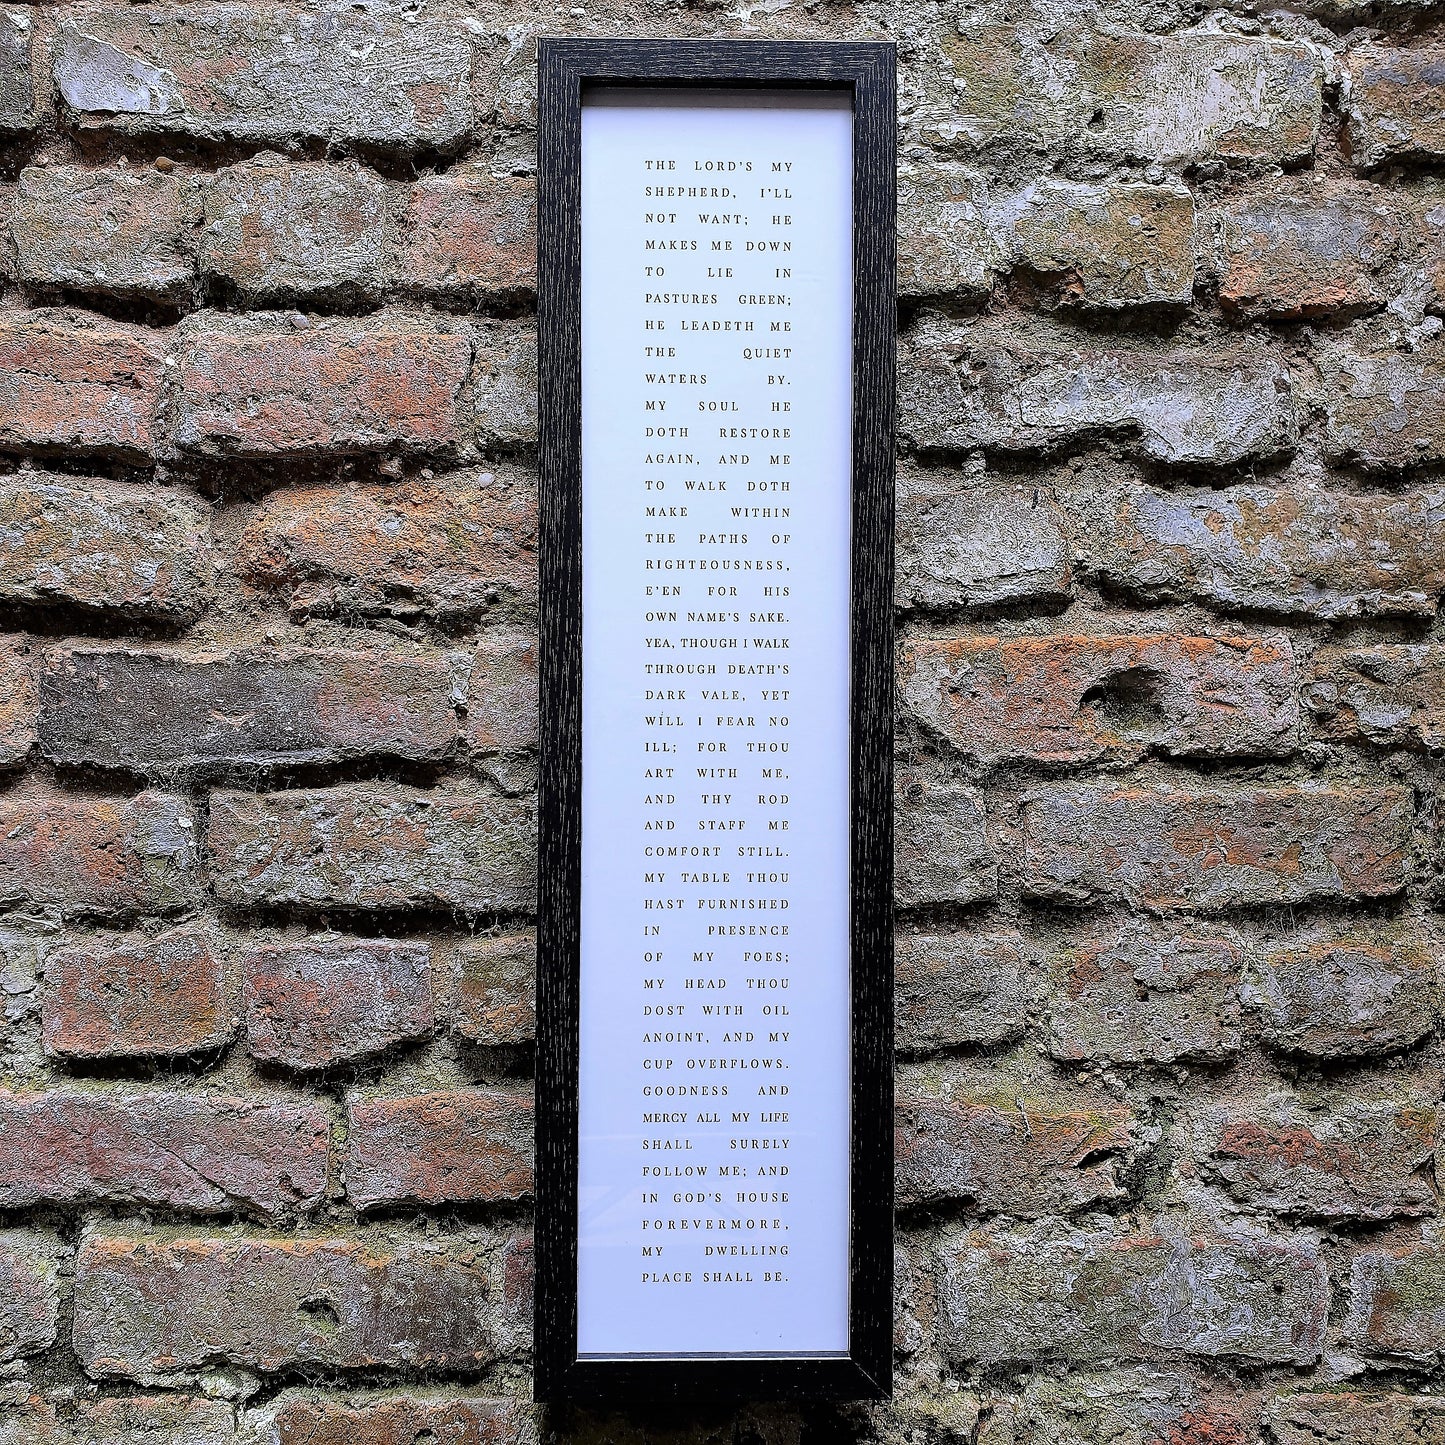 THE LORD'S MY
SHEPHERD, I'LL
NOT WANT; HE
MAKES ME DOWN
TO LIE IN
PASTURES GREEN;
HE LEADETH ME
THE QUIET
WATERS BY.
MY SOUL HE
DOTH RESTORE
AGAIN, AND ME
TO WALK DOTH
MAKE WITHIN
THE PATHS OF
RIGHTEOUSNESS,
E'EN FOR HIS
OWN NAME'S SAKE.
YEA, THOUGH I WALK
THROUGH DEATH'S
DARK VALE, YET
WILL I FEAR NO
ILL; FOR THOU
ART WITH ME,
AND THY ROD
AND STAFF ME
COMFORT STILL.
MY TABLE THOU
HAST FURNISHED
IN PRESENCE
OF MY FOES;
MY HEAD THOU
DOST WITH OIL
ANOINT, AND MY
CUP OVERFLOWS.
GOODNESS AND
MERCY ALL MY LIFE
SHALL SURELY
FOLLOW ME; AND
IN GOD'S HOUSE
FOREVERMORE,
MY DWELLING
PLACE SHALL BE.